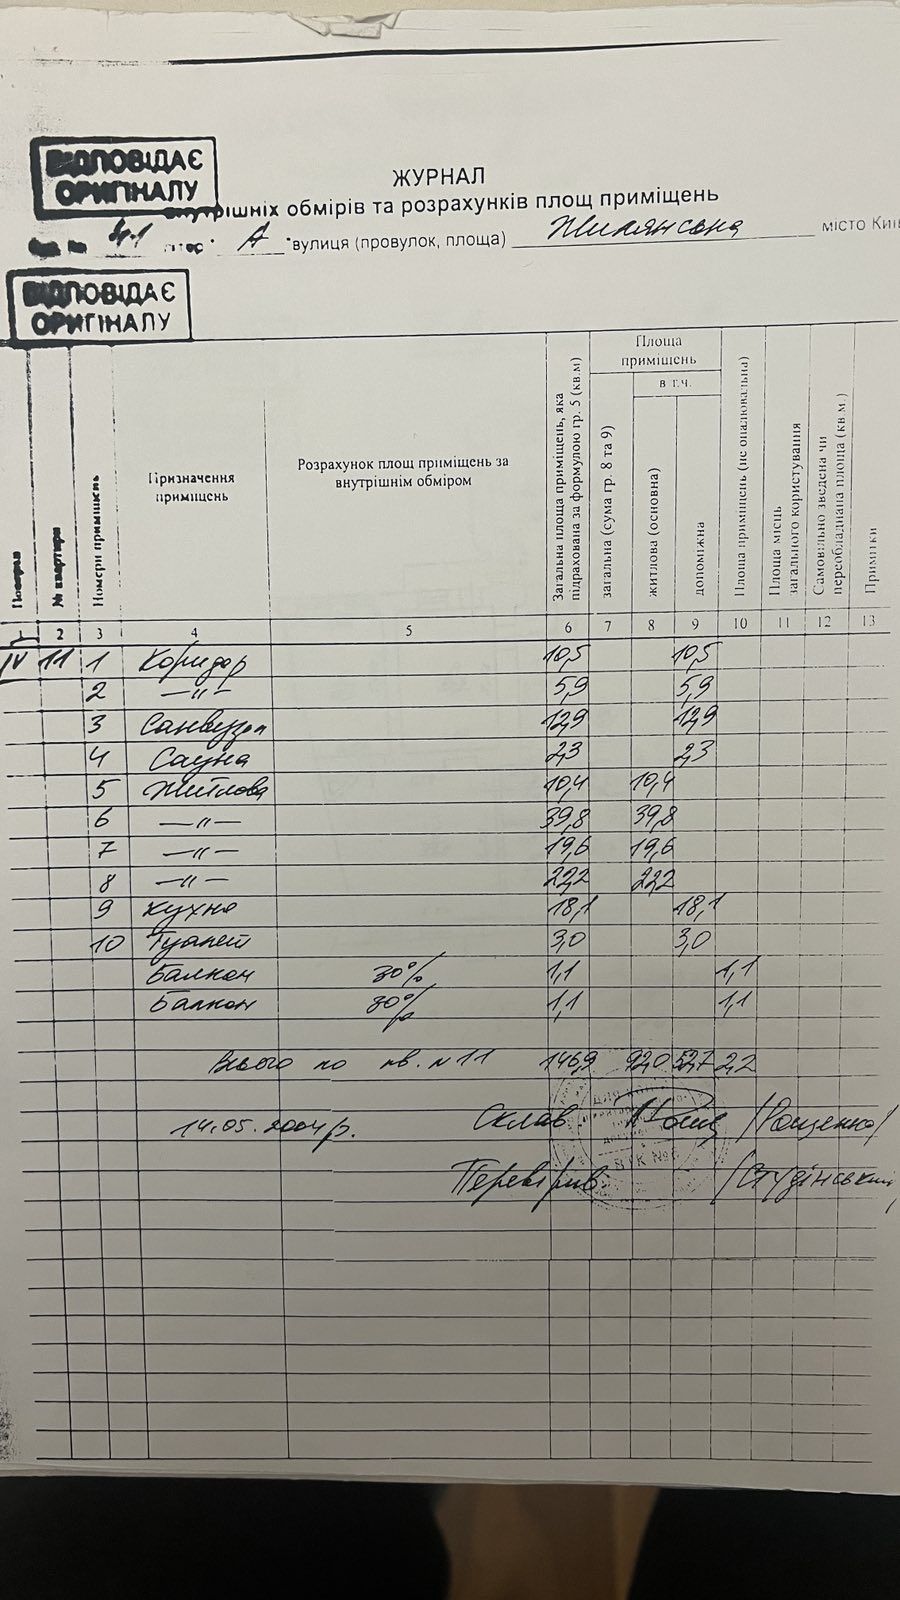 ВІДПОВІДАЄ
ОРИГІНАЛУ
ЖУРНАЛ
внутрішніх обмірів та розрахунків площ приміщень
41 літер "А" вулиця (провулок, площа) Жилянська місто Киї
ВІДПОВІДАЄ
ОРИГІНАЛУ
Поверхи
№ квартири
Номери приміщень
Призначення приміщень
Розрахунок площ приміщень за внутрішнім обміром
Загальна площа приміщень, яка підрахована за формулою гр. 5 (кв.м)
Площа приміщень
загальна (сума гр. 8 та 9)
в т.ч.
житлова (основна)
допоміжна
Площа приміщень (не опалювальна)
Площа місць загального користування
Самовільно зведена чи переобладнана площа (кв.м.)
Примітки
1 2 3 4 5 6 7 8 9 10 11 12 13
IV 11 1 Коридор 10,5 10,5
2 —"— 5,9 5,9
3 Санвузол 12,9 12,9
4 Сауна 2,3 2,3
5 Житлова 10,4 10,4
6 —"— 39,8 39,8
7 —"— 19,6 19,6
8 —"— 22,2 22,2
9 Кухня 18,1 18,1
10 Туалет 3,0 3,0
Балкон 30% 1,1 1,1
Балкон 30% 1,1 1,1
Всього по кв. №11 146,9 92,0 52,7 2,2
14.05.2004р. Склав /Рощенко/
Перевірив /Студінський/